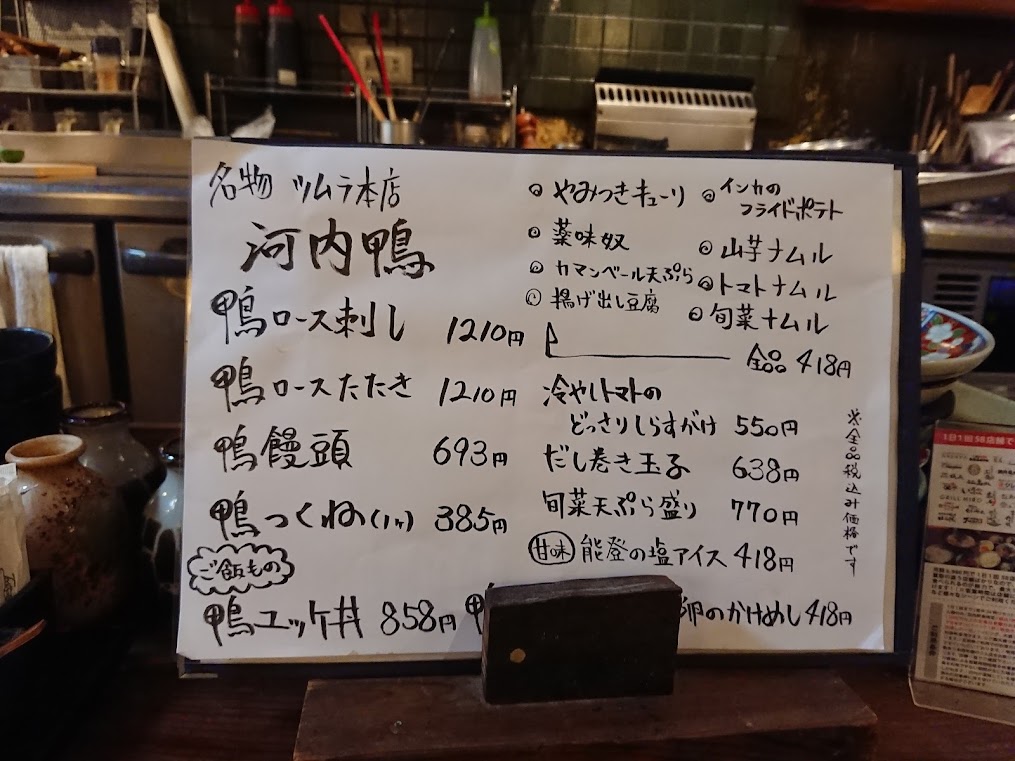 名物 ツムラ本店
河内鴨
鴨ロース刺し 1210円
鴨ロースたたき 1210円
鴨饅頭 693円
鴨つくね(1ヶ) 385円
ご飯もの
鴨ユッケ丼 858円
卵のかけめし 418円
◎ やみつきキューリ
◎ 薬味奴
◎ カマンベール天ぷら
◎ 揚げ出し豆腐
◎ インカの
フライドポテト
◎ 山芋ナムル
◎ トマトナムル
◎ 旬菜ナムル
全品 418円
冷やしトマトの
どっさりしらすがけ 550円
だし巻き玉子 638円
旬菜天ぷら盛り 770円
甘味 能登の塩アイス 418円
※全品税込み価格です